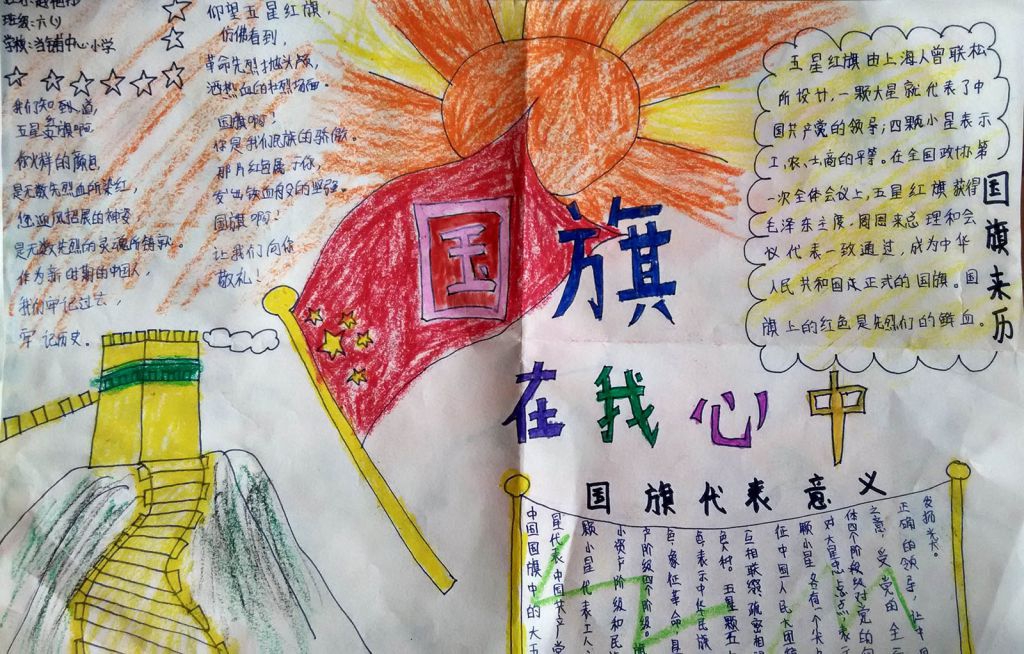 班级:六(1)
学校:当铺中心小学
我们知道,
五星红旗啊
你火样的颜色
是无数先烈血所染红,
您迎风招展的神姿
是无数先烈的灵魂所铸就。
作为新时期的中国人,
我们牢记过去,
牢记历史。
仰望五星红旗,
仿佛看到,
革命先烈抛头颅,
洒热血的壮烈场面。
国旗啊!
你是我们民族的骄傲。
那片红色属于你,
国旗啊!
让我们向你
敬礼!
国旗
在我心中
五星红旗由上海人曾联松
所设计,一颗大星就代表了中
国共产党的领导;四颗小星表示
工、农、士、商的平等。在全国政协第
一次全体会议上,五星红旗获得
毛泽东主席、周恩来总理和会
议代表一致通过,成为中华
人民共和国正式的国旗。国
旗上的红色是先烈们的鲜血。
国旗来历
国旗代表意义
发扬光大。
正确的领导,让中
之意,受党的全
体四个阶级对党的向
对大星忠点点,表示
颗小星各有一个尖
征中国人民大团结
互相联络,疏密相
黄种。五星颗五
色,表示中华民族
色,象征革命,
产阶级四个阶级。
小资产阶级和民
颗小星代表工人、
星代表中国共产党
中国国旗中的大五